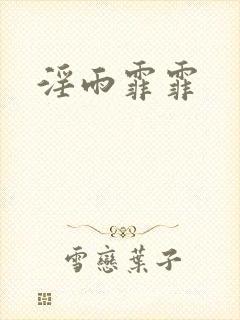 淫雨霏霏
雪戀葉子